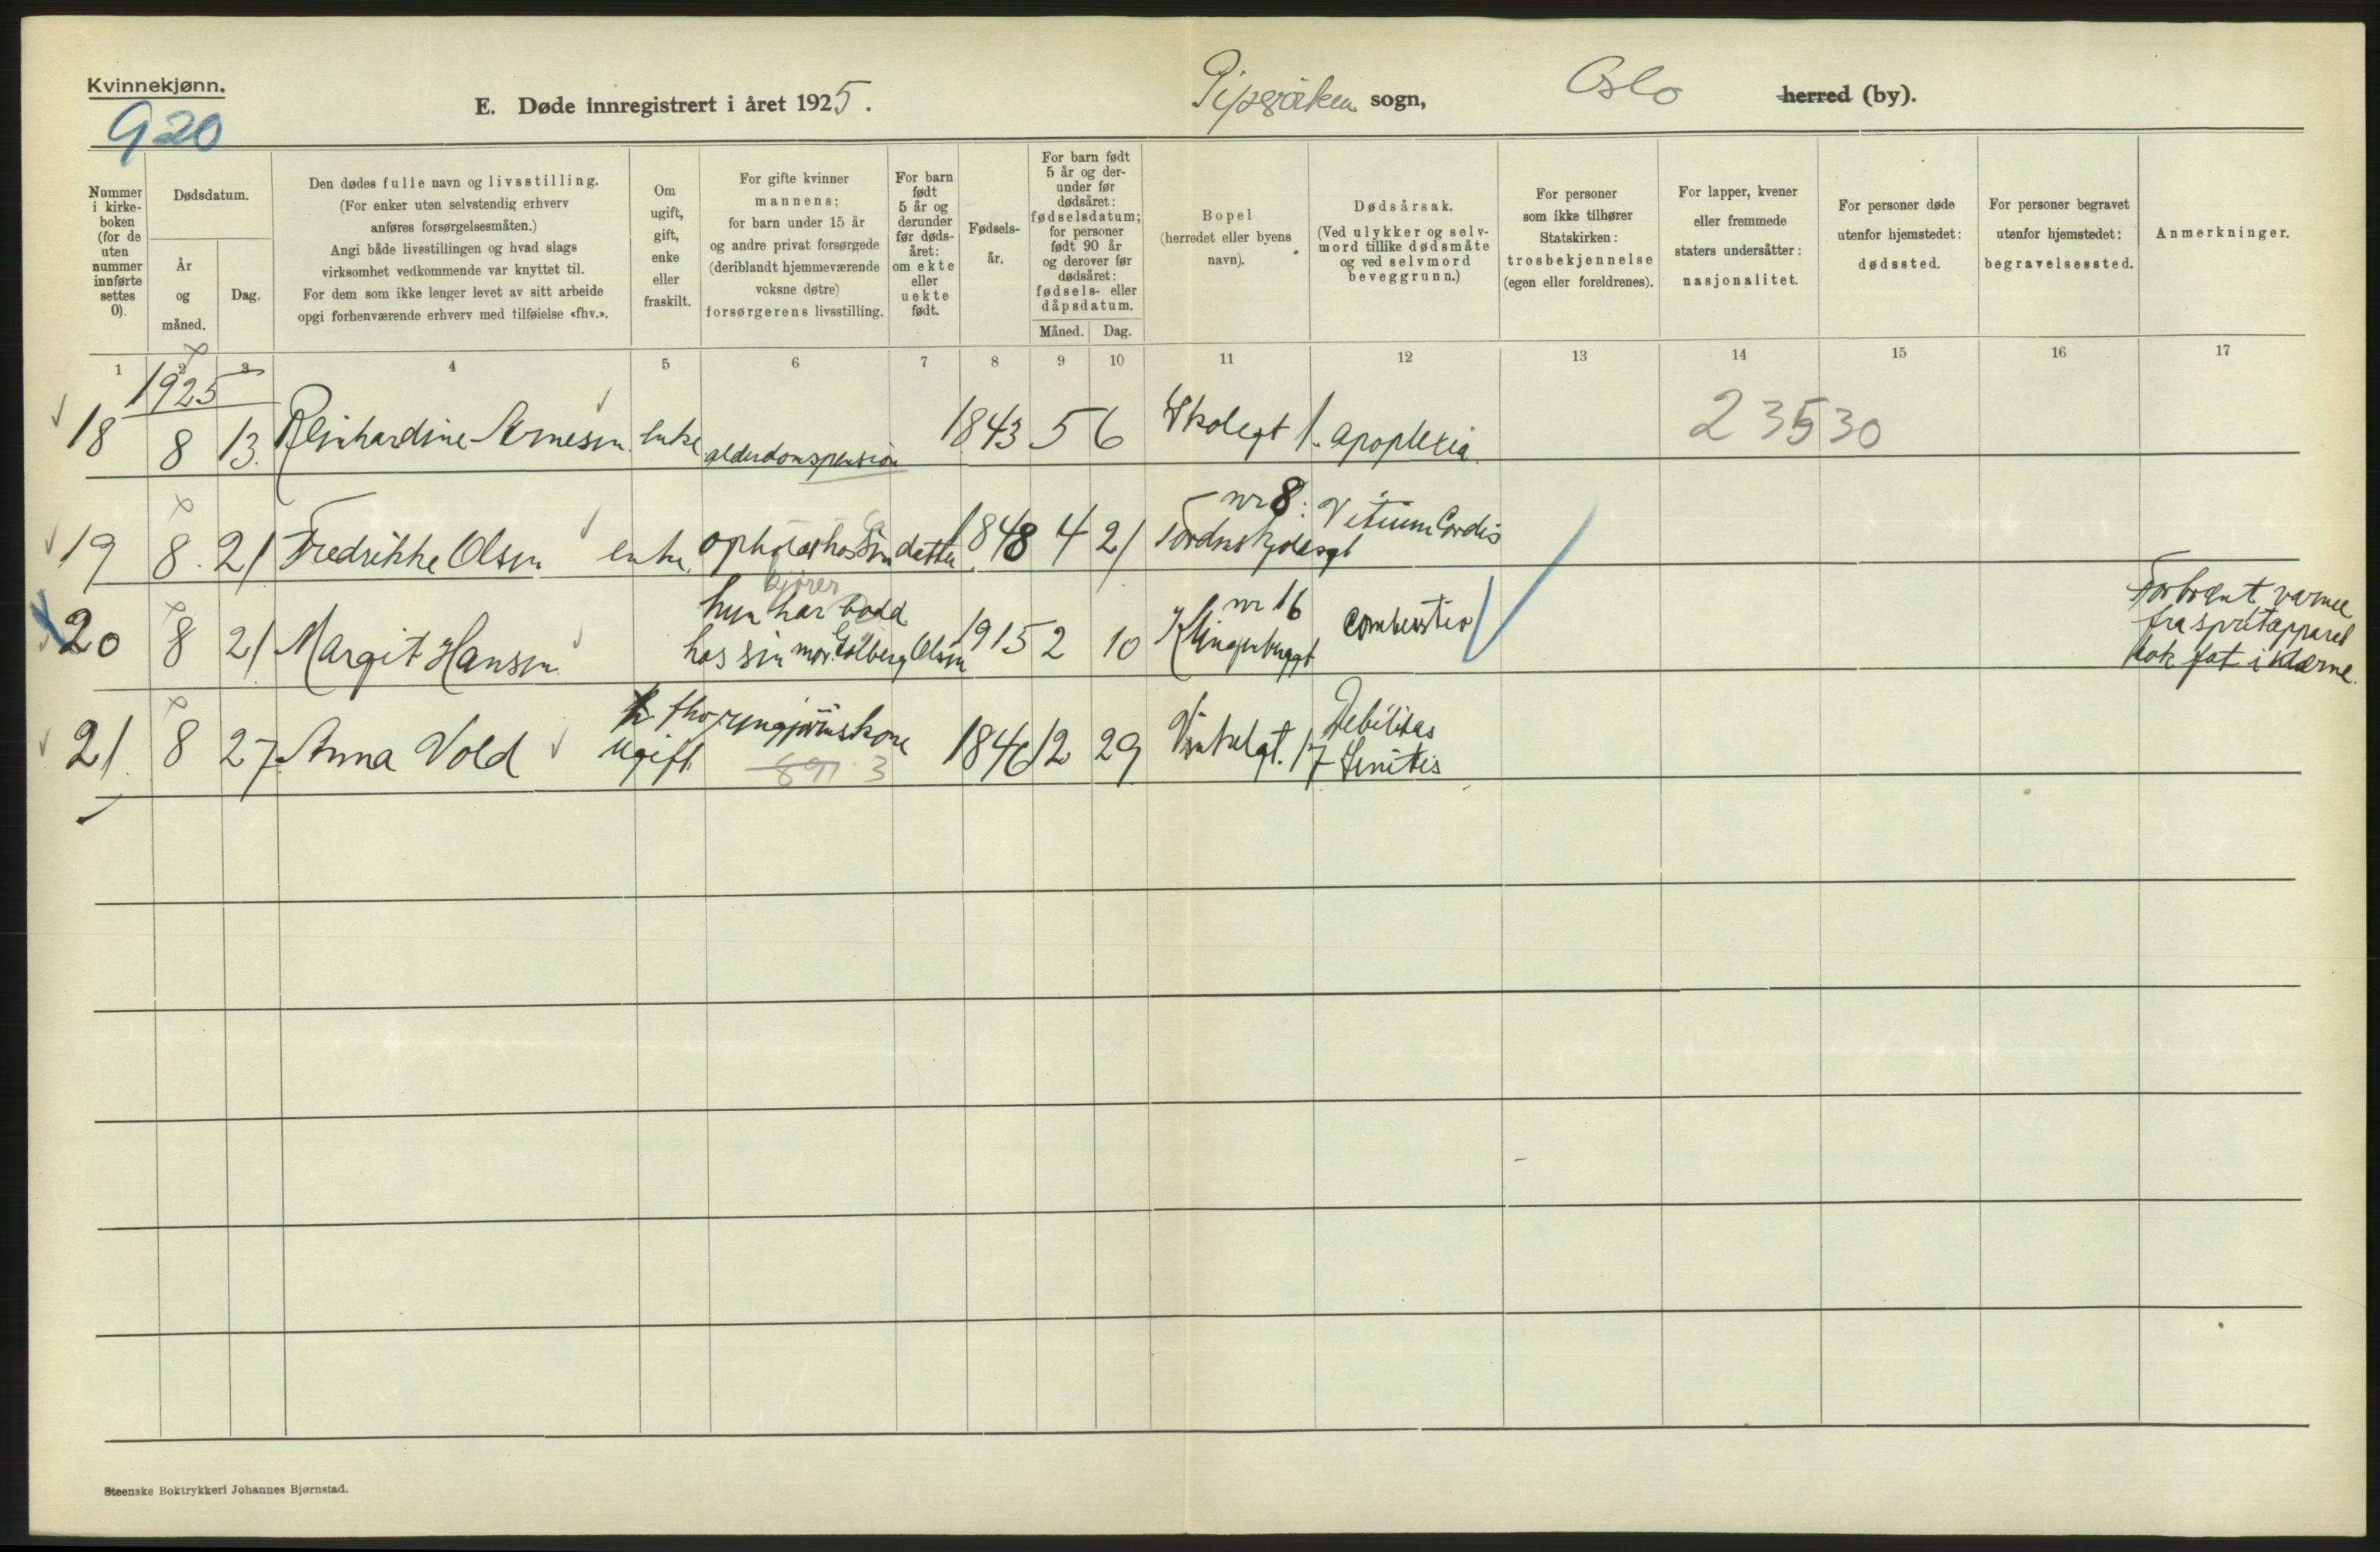 Kvinnekjønn.
920
E. Døde innregistrert i året 1925.
Piperviken sogn,
Oslo
herred (by).
Nummer i kirke-boken (for de uten nummer innførte settes 0).
Dødsdatum.
År og måned.
Dag.
Den dødes fulle navn og livsstilling.
(For enker uten selvstendig erhverv
anføres forsørgelsesmåten.)
Angi både livsstillingen og hvad slags
virksomhet vedkommende var knyttet til.
For dem som ikke lenger levet av sitt arbeide
opgi forhenværende erhverv med tilføielse «fhv.».
Om ugift, gift, enke eller fraskilt.
For gifte kvinner
mannens;
for barn under 15 år
og andre privat forsørgede
(deriblandt hjemmeværende
voksne døtre)
forsørgerens livsstilling.
For barn født 5 år og derunder før døds-året: om ekte eller uekte født.
Fødsels-år.
For barn født 5 år og der-under før dødsåret: fødselsdatum; for personer født 90 år og derover før dødsåret: fødsels- eller dåpsdatum.
Måned. Dag.
Bopel
(herredet eller byens
navn).
Dødsårsak.
(Ved ulykker og selv-
mord tillike dødsmåte
og ved selvmord
beveggrunn.)
For personer
som ikke tilhører
Statskirken:
trosbekjennelse
(egen eller foreldrenes).
For lapper, kvener
eller fremmede
staters undersåtter:
nasjonalitet.
For personer døde
utenfor hjemstedet:
dødssted.
For personer begravet
utenfor hjemstedet:
begravelsessted.
Anmerkninger.
1 2 3 4 5 6 7 8 9 10 11 12 13 14 15 16 17
1925
18 8 13. Reinhardine Arnesen enke alderdomspension 1843 5 6 Skolegt 1. apoplexia.
23530
19 8. 21 Fredrikke Olsen enke. opholdt hos sin datter. 1848 4 21 nr 8. Tordenskjoldsgt Vitium Cordis
20 8 21 Margit Hansen hun har bodd
hos sin mor Olsen 1915 2 10 nr 16 Klingenberggt Combustio
Forbrent varme
fra spritapparat
kok fat i klærne.
21. 8 27 Anna Vold ugift fhv. rengjøringskone 1846 12 29 Vinkelgt. 17 Debilitas
Senitis
Steenske Boktrykkeri Johannes Bjørnstad.